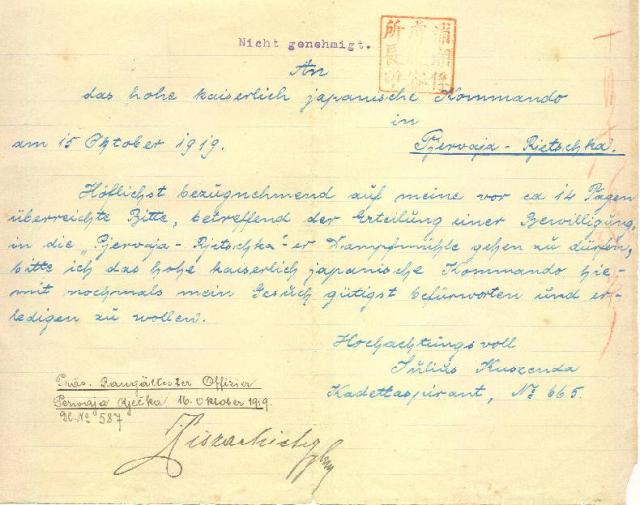 Nicht genehmigt.
An
das hohe kaiserlich japanische Kommando
in
am 15 Oktober 1919. Pjervaja-Rjetschka.
Höflichst bezugnehmend auf meine vor ca 14 Tagen
überreichte Bitte, betreffend der Erteilung einer Bewilligung,
in die „Pjervaja-Rjetschka"-er Dampfmühle gehen zu dürfen,
bitte ich das hohe kaiserlich japanische Kommando hie-
mit nochmals mein Gesuch gütigst befürworten und er-
ledigen zu wollen.
Hochachtungsvoll
Julius Kuszenda
Kadettaspirant, No 665.
Präs. Rangältester Offizier
Pervaja Rječka 16. Oktober 1919.
No 587